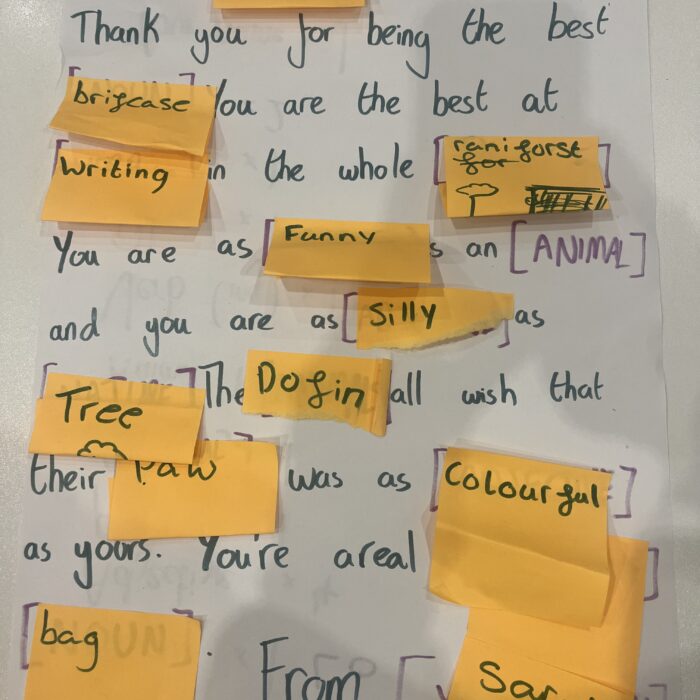 Thank you for being the best
brifcase You are the best at
Writing in the whole [raniforst for]
You are as [Funny s an [ANIMAL]
and you are as [Silly ]as
[Tree ]The Dofin all wish that
their Paw was as [Colourful]
as yours. You're areal ]
[bag ]. From [Sar